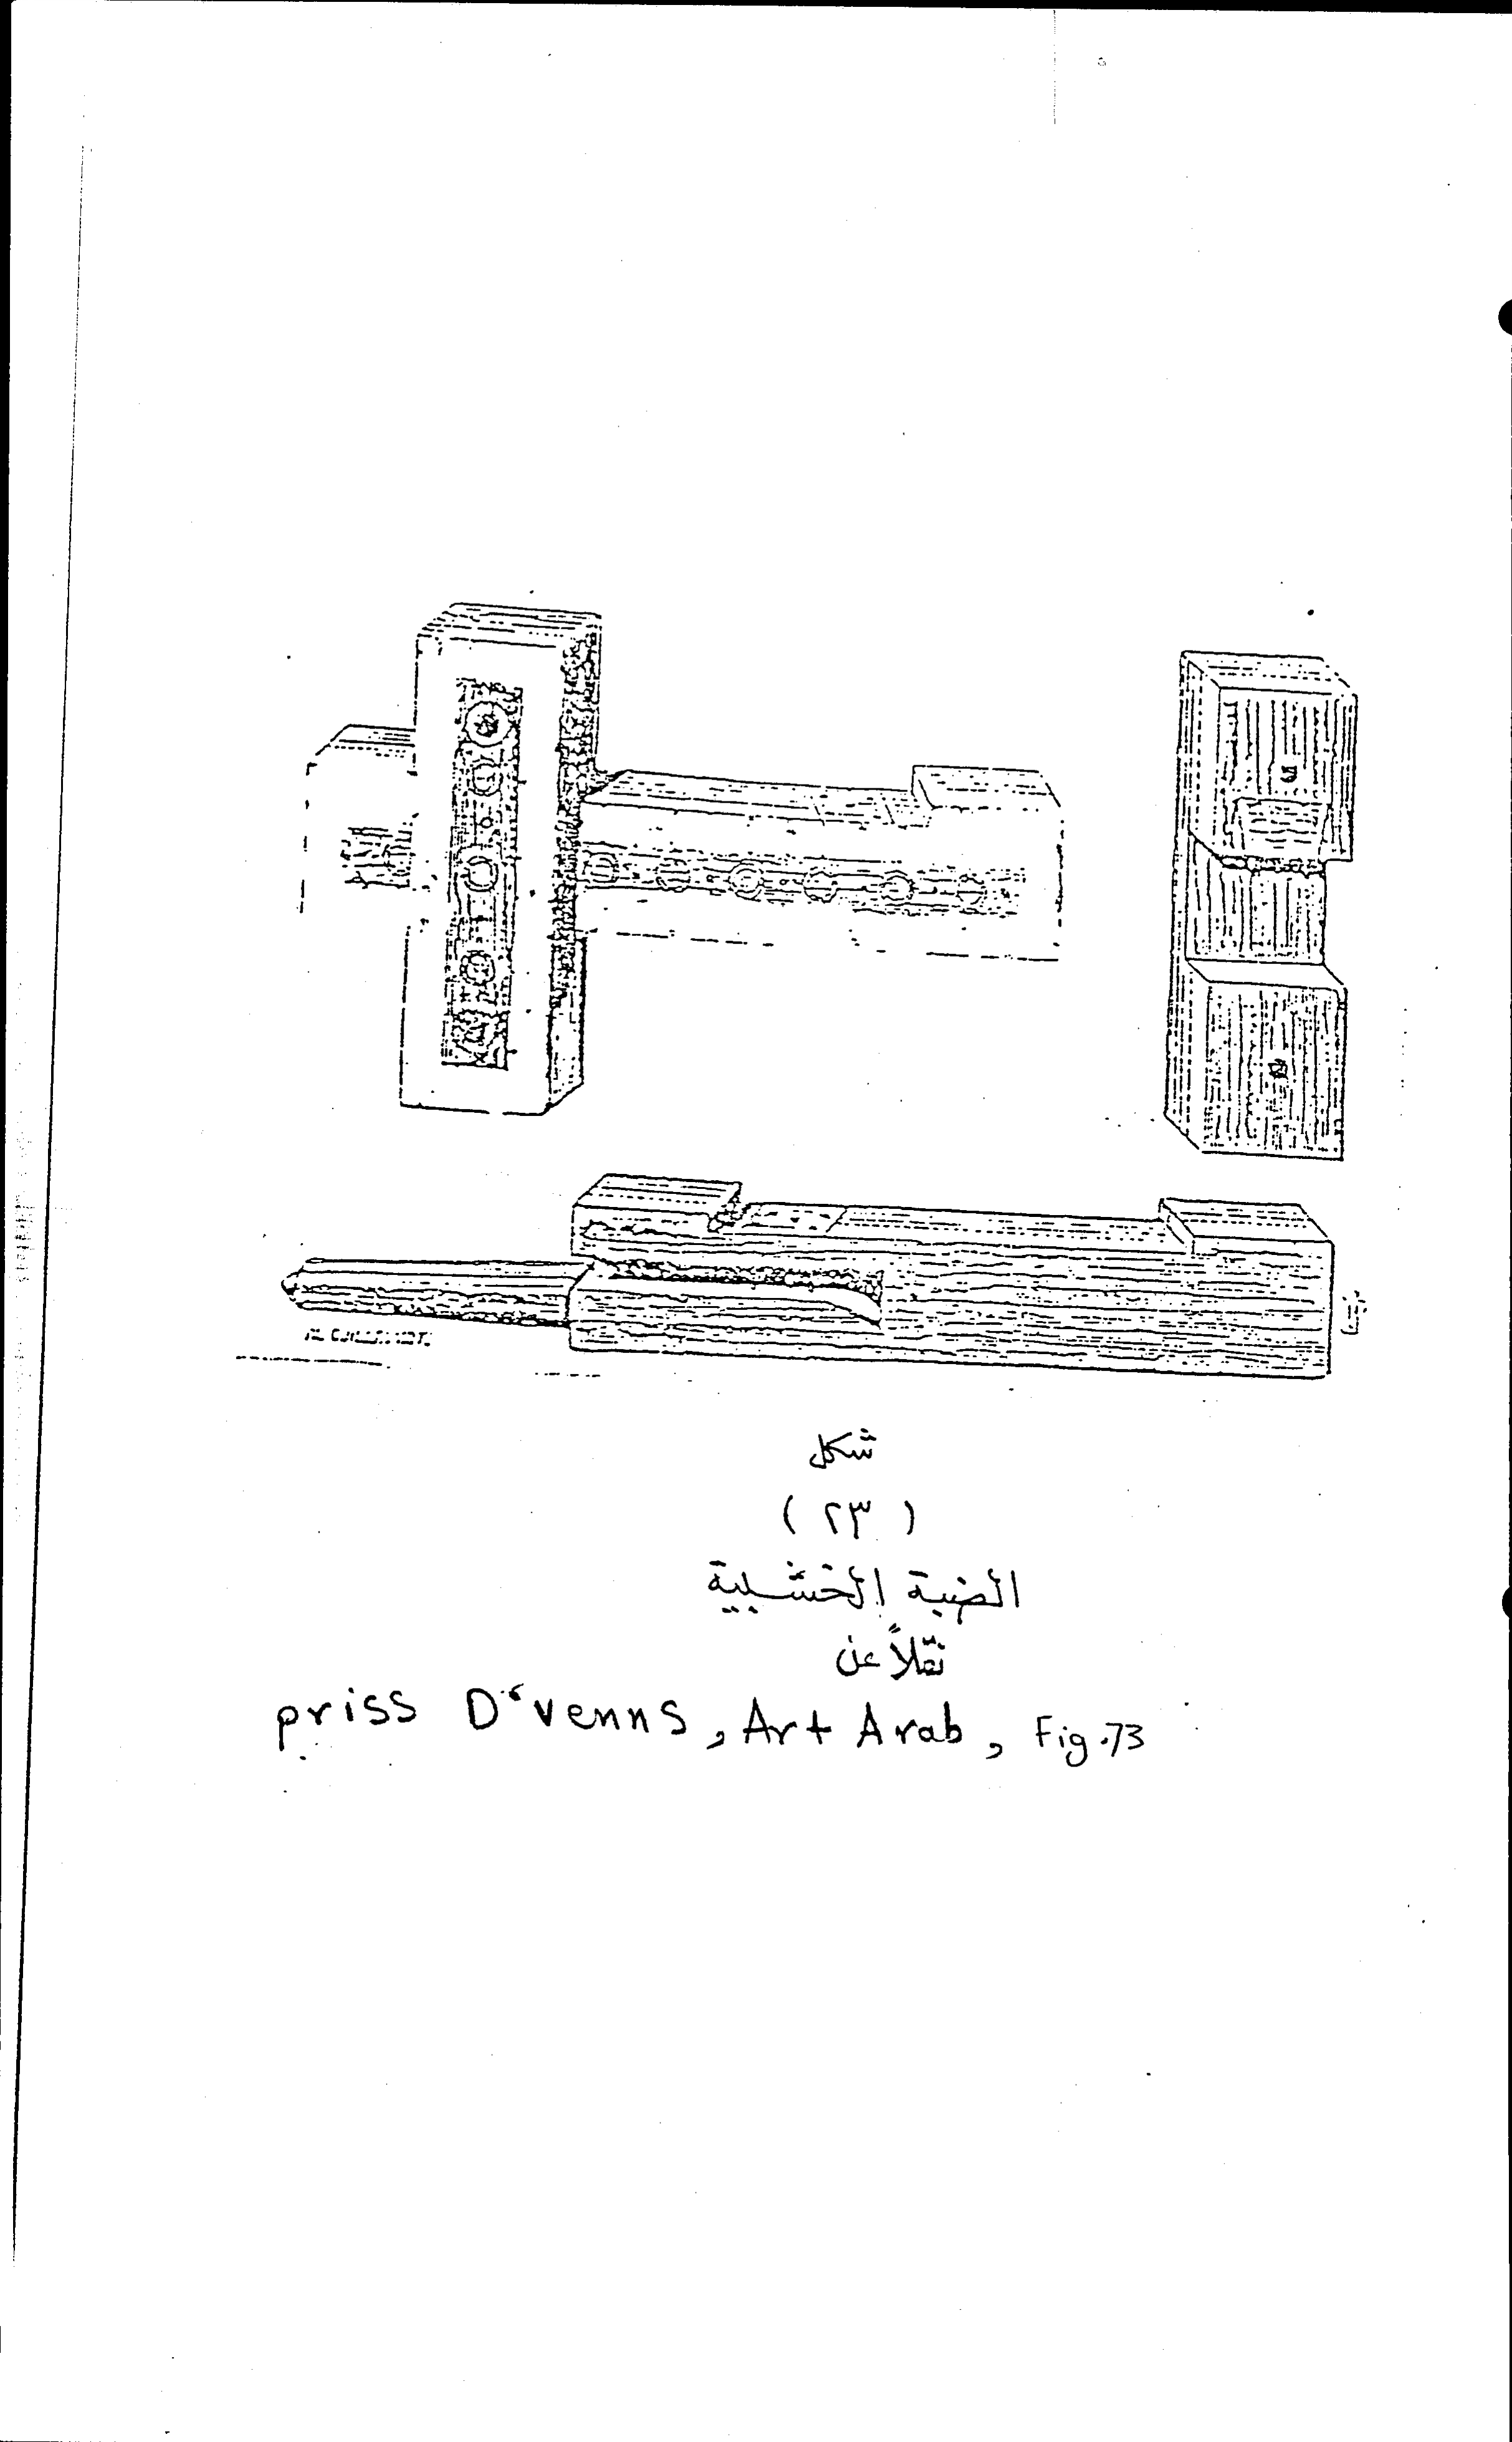 شكل
( ٢٣ )
الضبة الخشبية
نقلاً عن
priss D'venns, Art Arab, Fig.73